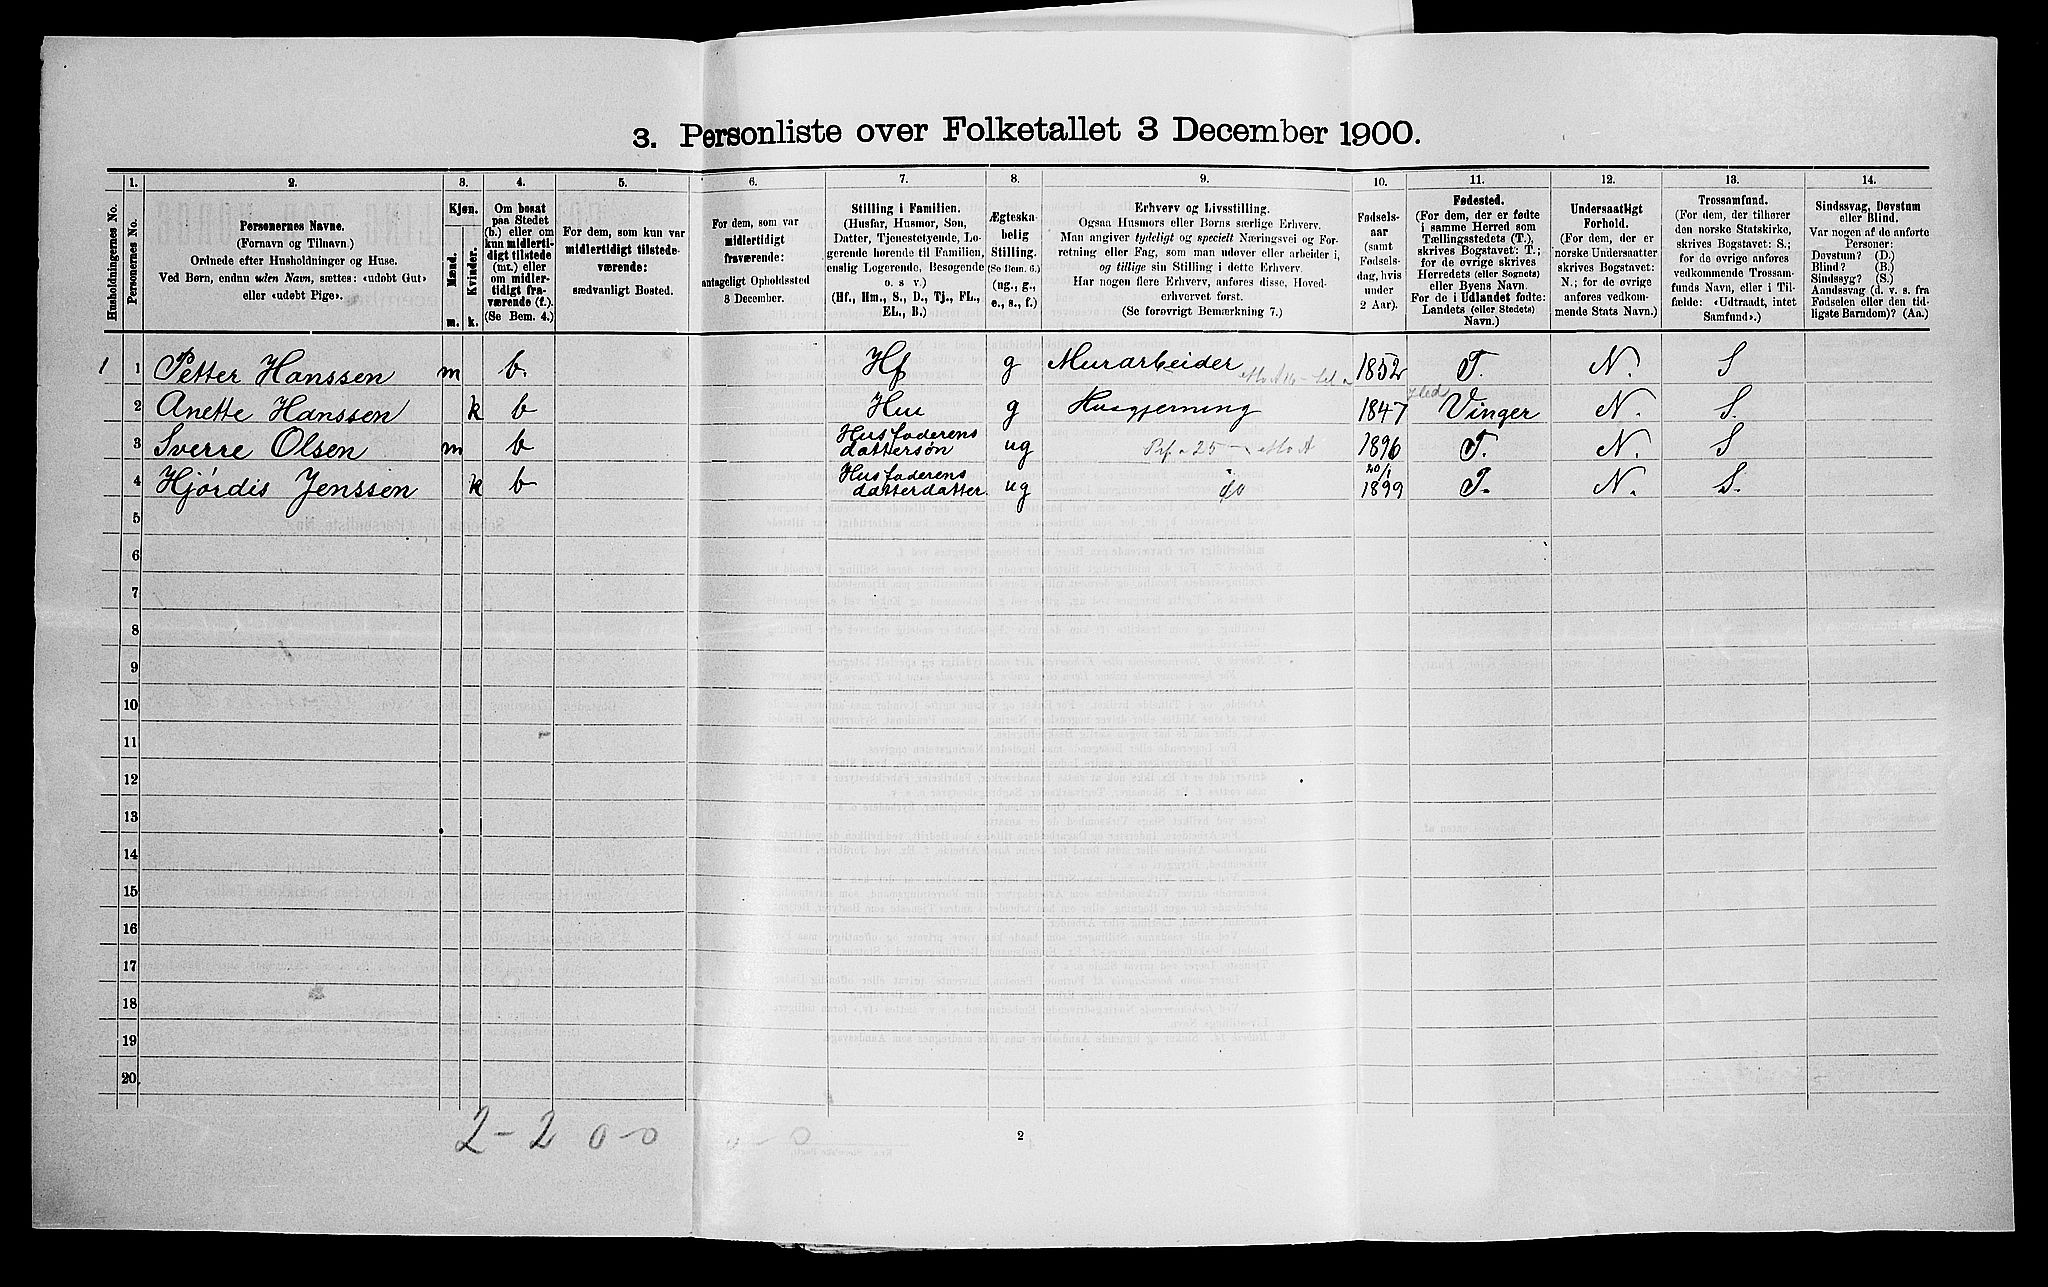 3. Personliste over Folketallet 3 December 1900.
1. 2. 3. 4. 5. 6. 7. 8. 9. 10. 11. 12. 13. 14.
Husholdningernes No.
Personernes No.
Personernes Navne.
(Fornavn og Tilnavn.)
Ordnede efter Husholdninger og Huse.
Ved Børn, endnu uden Navn, sættes: «udøbt Gut»
eller «udøbt Pige».
Kjøn.
Mænd.
Kvinder.
m. k.
Om bosat
paa Stedet
(b.) eller om
kun midlerti-
digt tilstede
(mt.) eller
om midler-
tidigt fra-
værende (f.).
(Se Bem. 4.)
For dem, som kun var
midlertidigt tilstede-
værende:
sædvanligt Bosted.
For dem, som var
midlertidigt
fraværende:
antageligt Opholdssted
3 December.
Stilling i Familien.
(Husfar, Husmor, Søn,
Datter, Tjenestetyende, Lo-
gerende hørende til Familien,
enslig Logerende, Besøgende
o. s v.)
(Hf., Hm., S., D., Tj., FL.,
EL., B.)
Ægteska-
belig
Stilling.
(Se Bem. 6.)
(ug., g.,
e., s., f.)
Erhverv og Livsstilling.
Ogsaa Husmors eller Børns særlige Erhverv.
Man angiver tydeligt og specielt Næringsvei og For-
retning eller Fag, som man udøver eller arbeider i,
og tillige sin Stilling i dette Erhverv.
Har nogen flere Erhverv, anføres disse, Hoved-
erhvervet først.
(Se forøvrigt Bemærkning 7.)
Fødsels-
aar
(samt
Fødsels-
dag, hvis
under
2 Aar).
Fødested.
(For dem, der er fødte
i samme Herred som
Tællingsstedets (T.),
skrives Bogstavet: T.;
for de øvrige skrives
Herredets (eller Sognets)
eller Byens Navn.
For de i Udlandet fødte:
Landets (eller Stedets)
Navn.)
Undersaatligt
Forhold.
(For dem, der er
norske Undersaatter
skrives Bogstavet:
N.; for de øvrige
anføres vedkom-
mende Stats Navn.)
Trossamfund.
(For dem, der tilhører
den norske Statskirke,
skrives Bogstavet: S.;
for de øvrige anføres
vedkommende Trossam-
funds Navn, eller i Til-
fælde: «Udtraadt, intet
Samfund».)
Sindssvag, Døvstum
eller Blind.
Var nogen af de anførte
Personer:
Døvstum? (D.)
Blind? (B.)
Sindssyg? (S.)
Aandssvag (d. v. s. fra
Fødselen eller den tid-
ligste Barndom)? (Aa.)
1 1 Petter Hanssen m b. Hf g Murarbeider 1852 T. N. S
2 Anette Hanssen k b Hm g Husgjerning 1847 Vinger N. S.
3 Sverre Olsen m b Husfaderens dattersøn ug 1896 T. N. S
4 Hjørdis Jenssen k b Husfaderens datterdatter. ug do 20/1 1899 T. N. S.
5
6
7
8
9
10
11
12
13
14
15
16
17
18
19
20
2-2 0-0 0-0
2